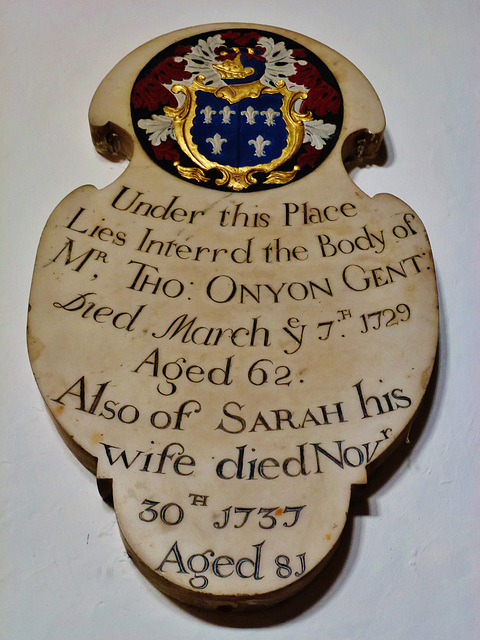 Under this Place
Lies Interrd the Body of
Mᴿ, Tho: Onyon Gent:
Died March yᵉ 7.ᵀᴴ 1729
Aged 62.
Also of Sarah his
wife died Novʳ
30ᵀᴴ 1737
Aged 81